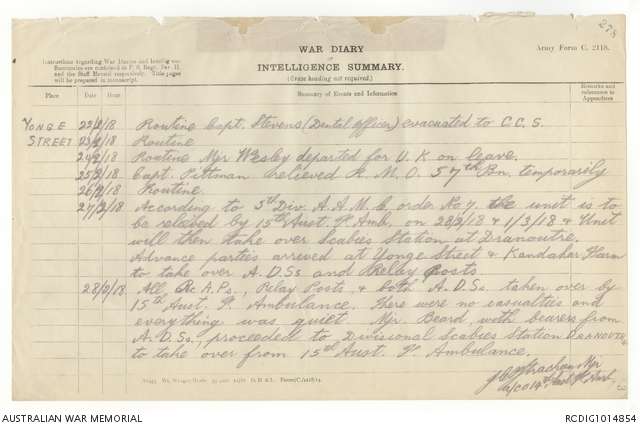 278
WAR DIARY
or
INTELLIGENCE SUMMARY.
(Erase heading not required.)
Army Form C. 2118.
Instructions regarding War Diaries and Intelligence
Summaries are contained in F. S. Regs., Par. II.
and the Staff Manual respectively. Title pages
will be prepared in manuscript.
Place Date Hour Summary of Events and Information Remarks and references to Appendices
YONGE STREET 22/2/18 Routine Capt. Stevens (Dental Officer) evacuated to C.C.S.
23/2/18 Routine
24/2/18 Routine Mjr Wesley departed for U.K on leave.
25/2/18 Capt. Pittman relieved R.M.O. 57th Bn. temporarily
26/2/18 Routine.
27/2/18 According to 5th Div. A.A.M.C. order No 7. the unit is to
be relieved by 15th Aust. Fd Amb. on 28/2/18 & 1/3/18 & Unit
will then take over Scabies Station at Dranoutre.
Advance parties arrived at Yonge Street & Kandahar Farm
to take over A.D.Ss and Relay Posts
28/2/18. All R.A.Ps, Relay Posts & both A.D.Ss. taken over by
15th Aust. Fd. Ambulance. There were no casualties and
everything was quiet. Mjr. Beard, with bearers from
A.D.Ss, proceeded to Divisional Scabies Station DRANOUTRE
to take over from 15th Aust. Fd Ambulance.
Strachan Mjr
14th Aust. Fd Amb.
AUSTRALIAN WAR MEMORIAL
RCDIG1014854